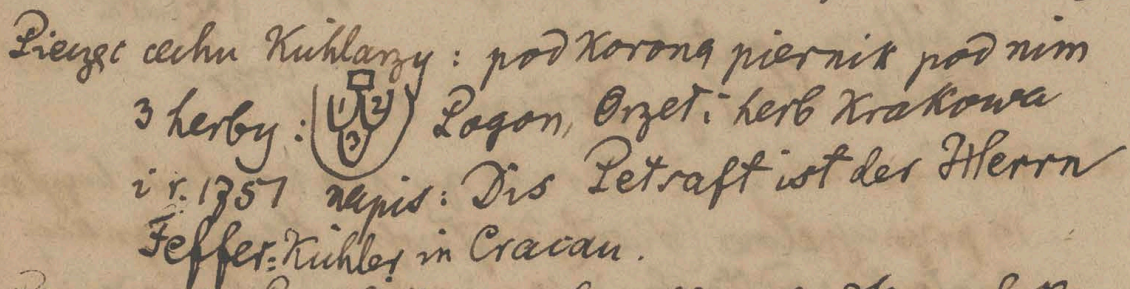 Pieczęć cechu Kühlarzy : pod koroną piernik pod nim
3 herby : 1 2 3 Pogon, Orzeł i herb Krakowa
i r. 1757 napis : Dis Petsaft ist der Herrn
Feffer-Kühler in Cracau.